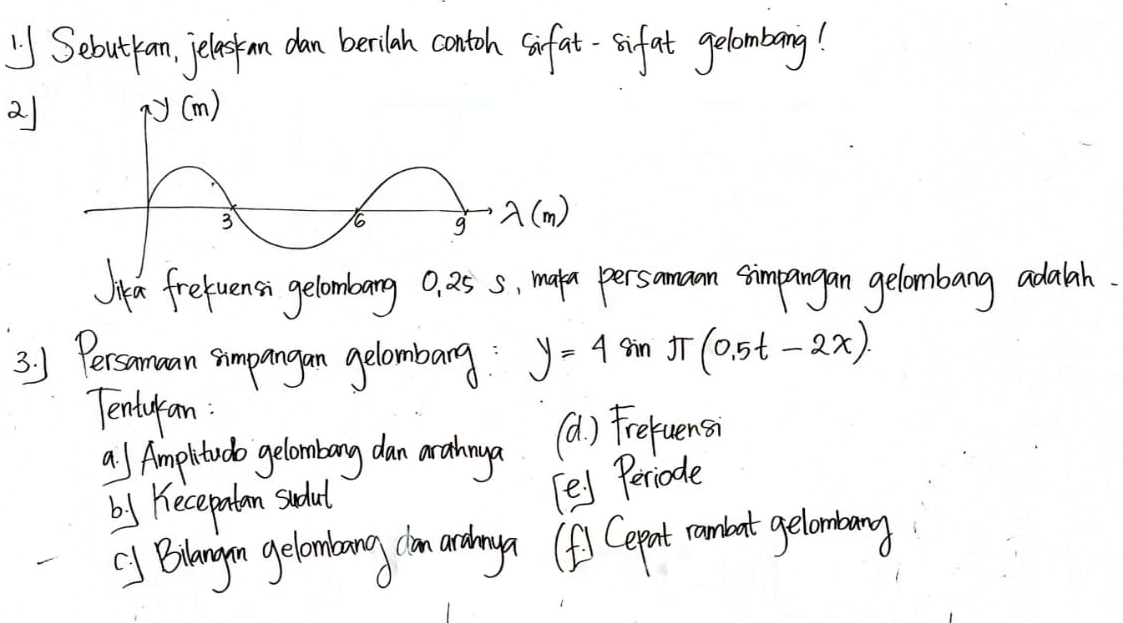 1.) Sebutkan, jelaskan dan berilah contoh sifat - sifat gelombang!
2.)
y (m)
3 6 9 λ (m)
Jika frekuensi gelombang 0,25 s, maka persamaan simpangan gelombang adalah -
3.) Persamaan simpangan gelombang : y = 4 sin π (0,5t - 2x).
Tentukan :
a.) Amplitudo gelombang dan arahnya (d.) Frekuensi
b.) Kecepatan sudut [e.) Periode
c.) Bilangan gelombang dan arahnya (f.) Cepat rambat gelombang